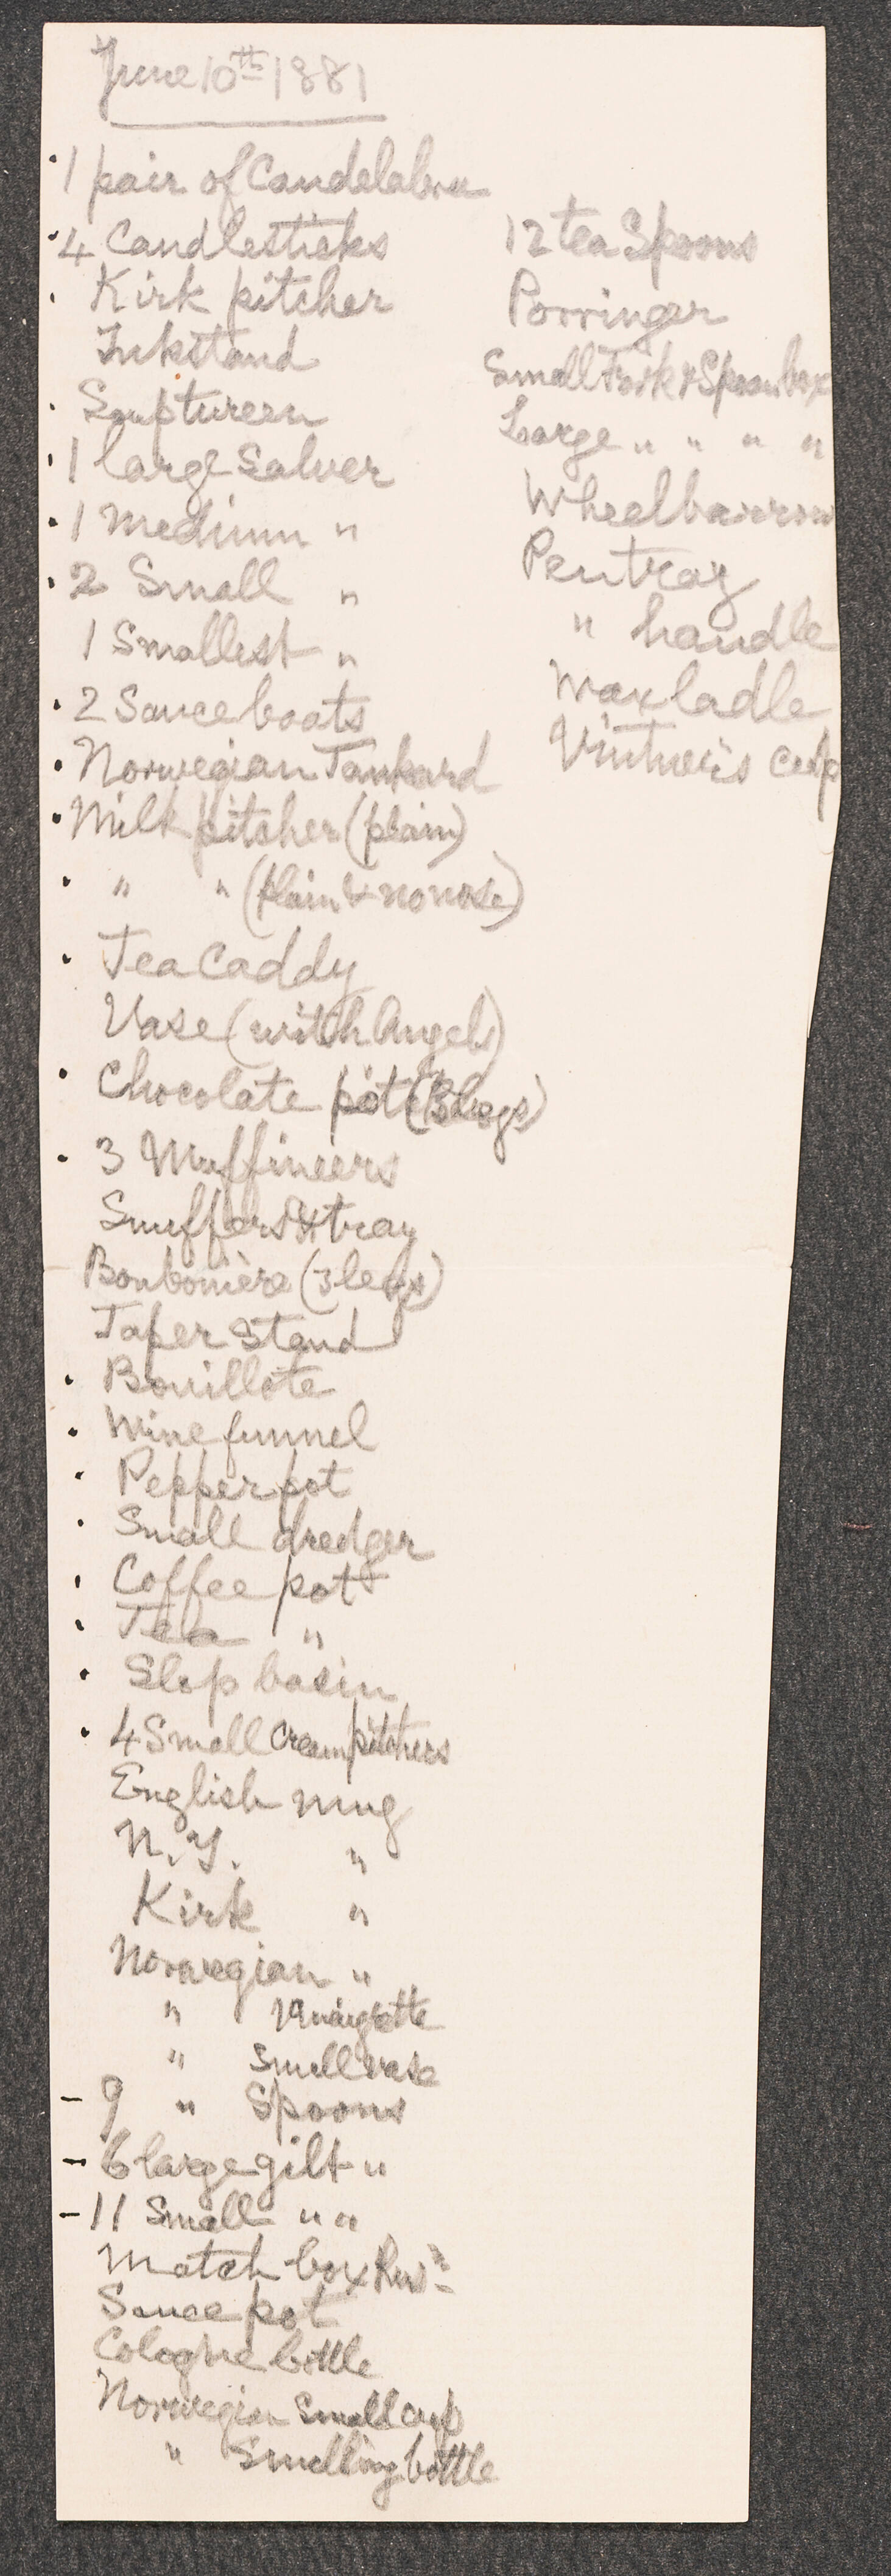 June 10th 1881
1 pair of Candelabra
4 Candlesticks
Kirk pitcher
Inkstand
Soup tureen
1 large Salver
1 Medium "
2 Small "
1 Smallest "
2 Sauce boats
Norwegian Tankard
Milk pitcher (plain)
" " (plain & no nose)
Tea Caddy
Vase (with Angels)
Chocolate pot (3 legs)
3 Muffineers
Snuffers & tray
Bonbonière (3 legs)
Taper Stand
Bouillote
Wine funnel
Pepper pot
Small dredger
Coffee pot
Tea "
Slop basin
4 Small Cream pitchers
English mug
N.Y. "
Kirk "
Norwegian "
" Vinaigrette
" Small vase
- 9 " Spoons
- 6 large gilt "
- 11 Small " "
Match box
Sauce pot
Cologne bottle
Norwegian Small cup
" Smelling bottle
12 tea Spoons
Porringer
Small Fork & Spoon box
Large " " " "
Wheelbarrow
Pentray
" handle
Wax ladle
Vintner's cup